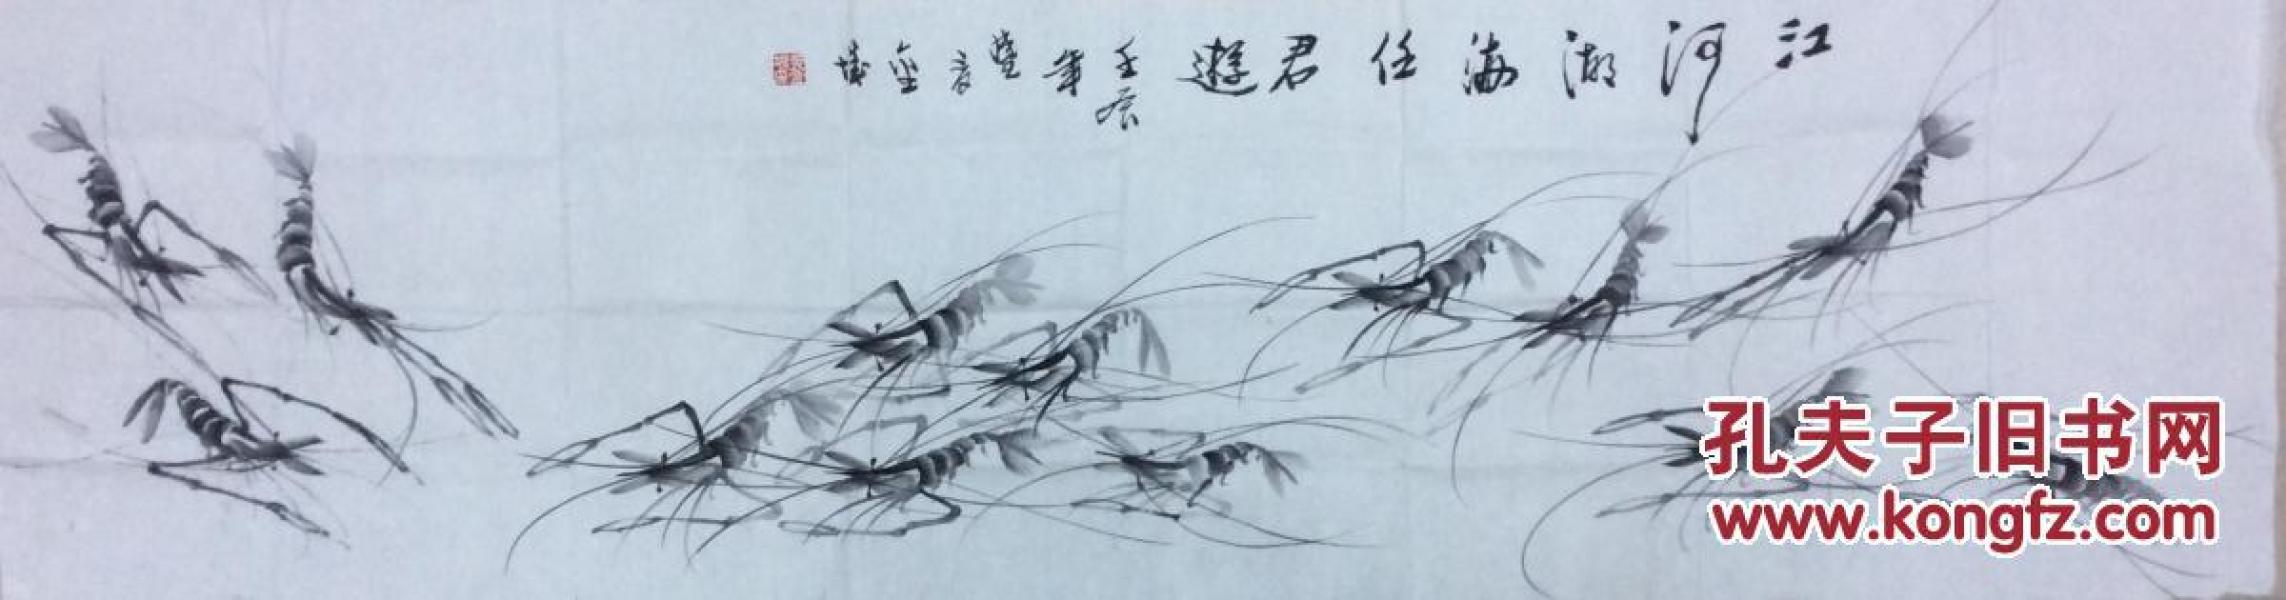 江河湖海任君遊
壬辰年
孔夫子旧书网
www.kongfz.com